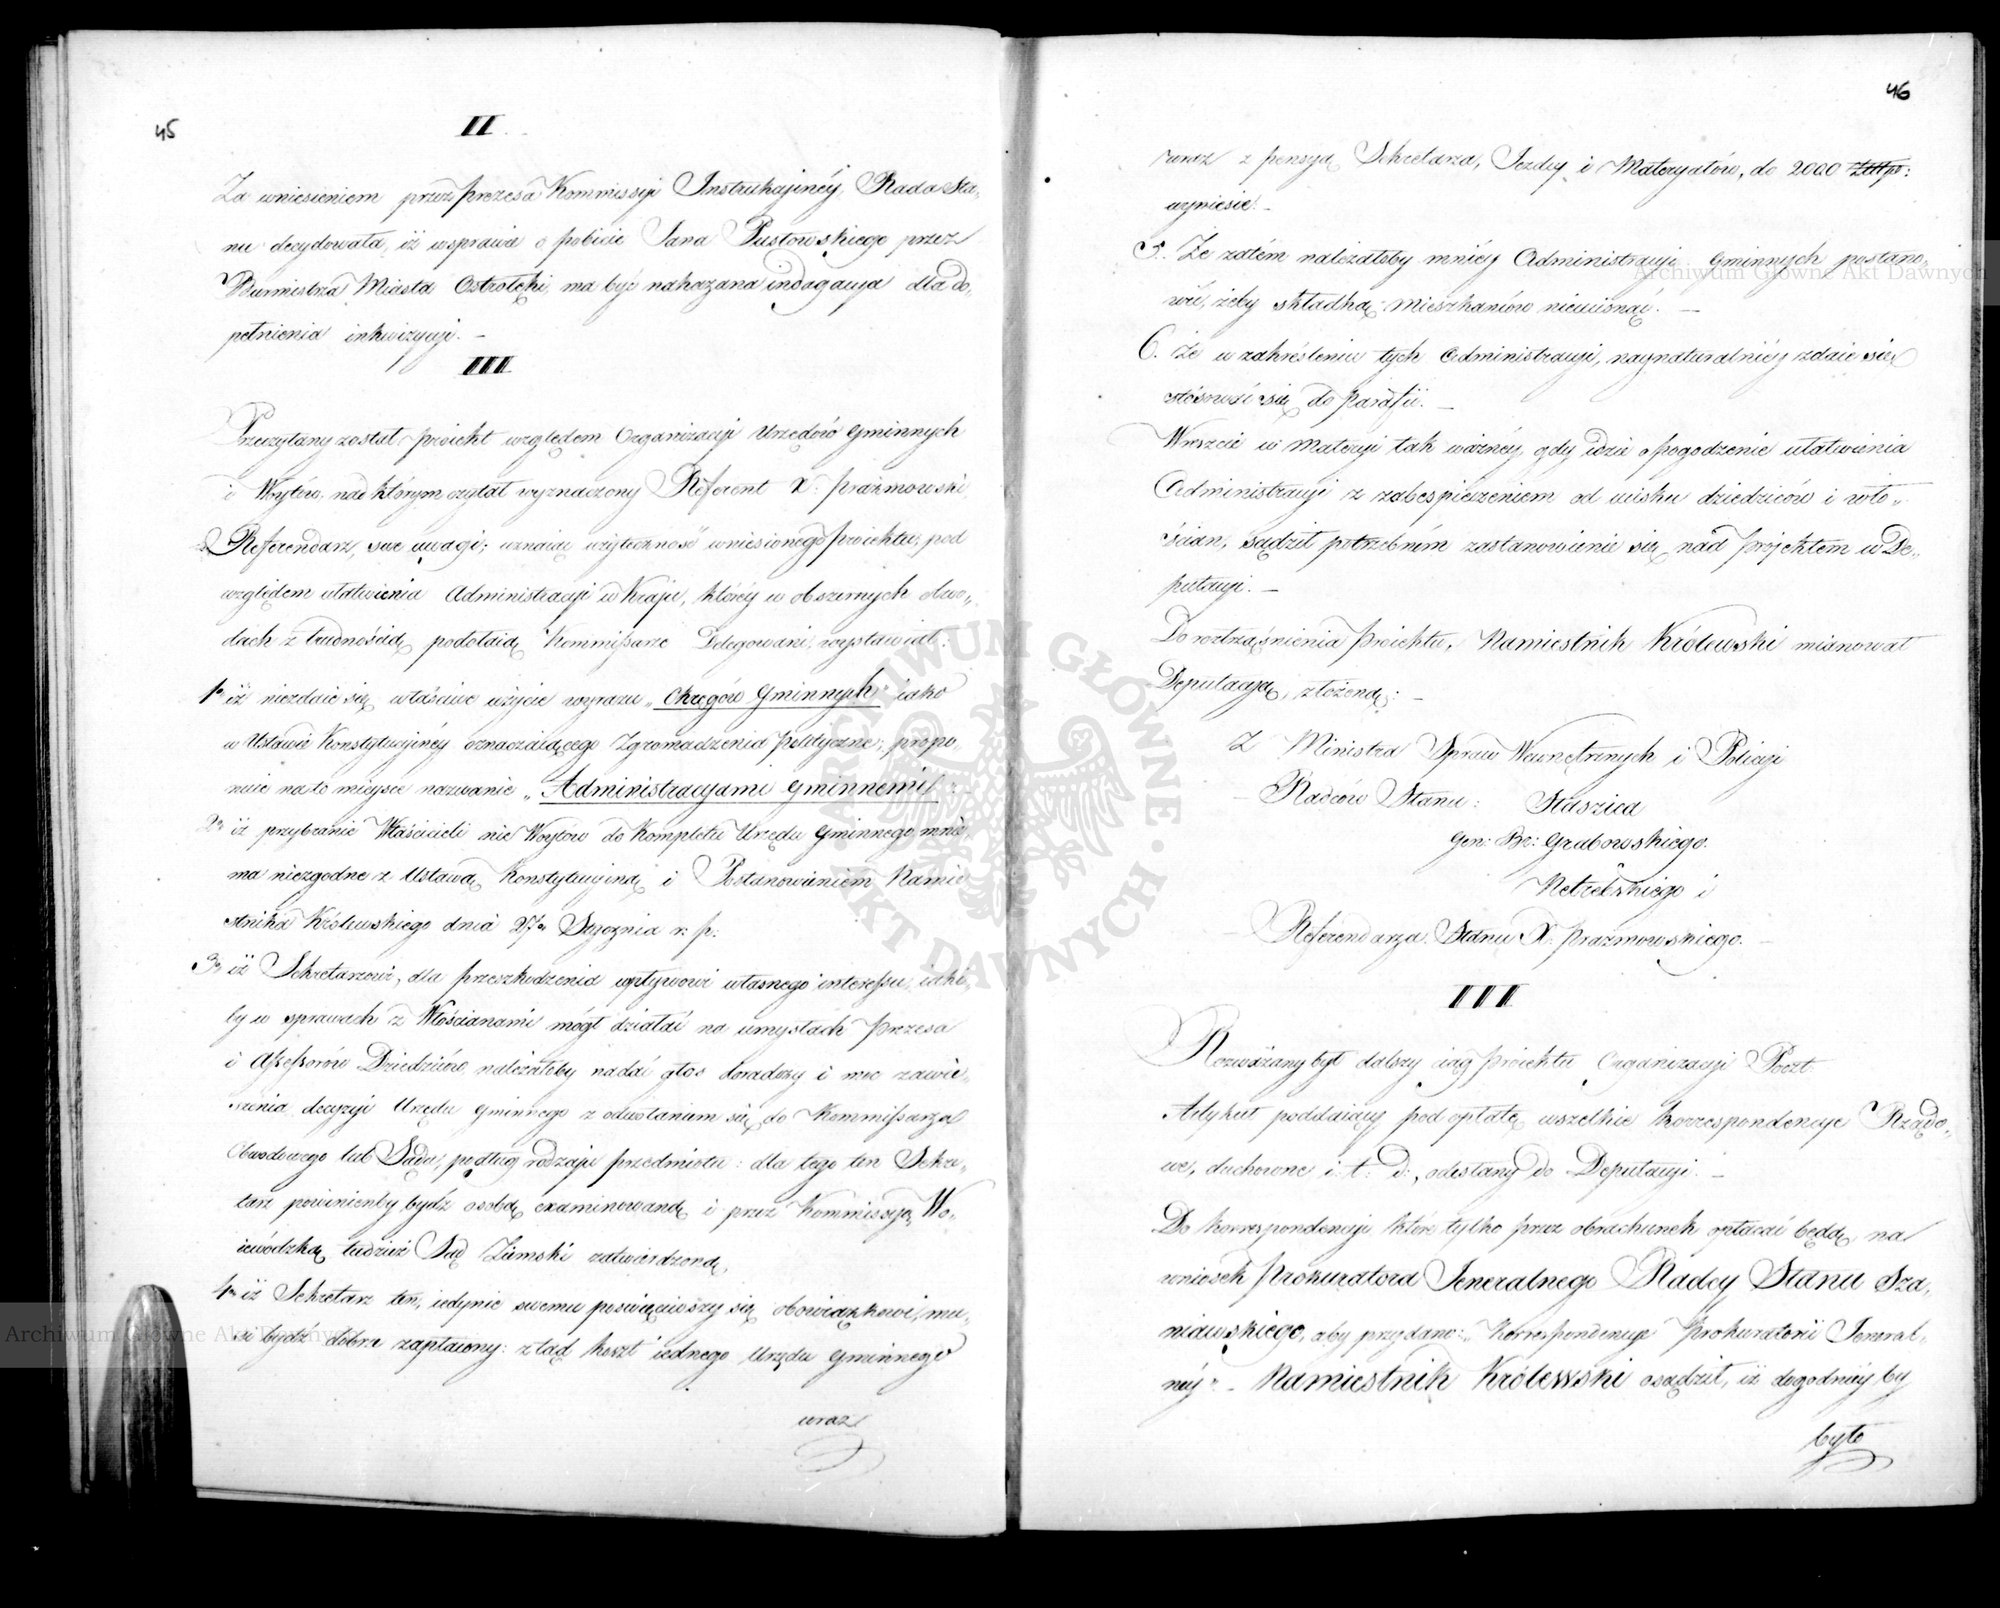 45
II
Za wniesieniem przez Prezesa Kommissyi Instrukcyinéy, Rada Sta-
nu decydowała, iż wsprawie o pobicie Jana Pustowskiego przez
Burmistrza Miasta Ostrołęki, ma być nakazana indagacya dla do-
pełnienia inkwizycyi. —
III
Przeczytany został proiekt względem Organizacyi Urzędów Gminnych
i Woytów, nad którym czytał wyznaczony Referent X. Prażmowski
Referendarz, swe uwagi; uznaiąc użyteczność wniesionego proiektu, pod
względem ułatwienia Administracyi w Kraju, któréy w obszernych obwo-
dach z trudnością podołaią Kommissarze Delegowani, wystawiał:
1o iż niezdaie się właściwe użycie wyrazu „Okręgów Gminnych" iako
w Ustawie Konstytucyinéy oznaczaiącego Zgromadzenia polityczne; propo-
nuie na to mieysce nazwanie „Administracyami Gminnemi" —
2o iż przybranie Właścicieli nie Woytów do Kompletu Urzędu Gminnego mnie-
ma niezgodne z Ustawą Konstytucyiną i Postanowieniem Namie-
stnika Królewskiego dnia 27o Stycznia r: p:
3o iż Sekretarzowi, dla przeszkodzenia wpływowi własnego interessu, iaki-
by w sprawach z Włościanami mógł działać na umysłach Prezesa
i Assessorów Dziedziców, należałoby nadać głos doradczy i moc zawie-
szenia decyzyi Urzędu Gminnego z odwołaniem się do Kommissarza
Obwodowego lub Sądu, podług rodzaju przedmiotu: dla tego ten Sekre-
tarz powinienby bydź osobą examinowaną i przez Kommissyą Wo-
iewódzką tudzież Sąd Ziemski zatwierdzoną,
4o iż Sekretarz ten, iedynie swemu poświęciwszy się obowiązkowi, mu-
si bydź dobrze zapłacony: ztąd koszt iednego Urzędu Gminnego
wraz
46
wraz z pensyą Sekretarza, Jezdcy i Materyałów, do 2000 Złtp:
wyniesie. —
5. Że zatém należałoby mniéy Administracyi Gminnych postano-
wić, żeby składką mieszkańców nieuciskać. —
6. Że w zakreśleniu tych Administracyi, naynaturalniéy zdaie się
stósować się do parafii. —
Wreszcie w materyi tak ważnéy, gdy idzie o pogodzenie ułatwienia
Administracyi z zabespieczeniem od ucisku dziedziców i wło-
ścian, sądził potrzebném zastanowienie się nad projektem w De-
putacyi. —
Do roztrząśnienia proiektu, Namiestnik Królewski mianował
Deputacyą, złożoną: —
Z Ministra Spraw Wewnętrznych i Policyi
Radców Stanu: Staszica
Gen: Br: Grabowskiego.
i
Referendarza Stanu X. Prażmowskiego. —
III
Rozważany był dalszy ciąg proiektu Organizacyi Poczt.
Artykuł poddaiący pod opłatę wszelkie korrespondencye Rządo-
we, duchowne i. t. d., odesłany do Deputacyi. —
Do korrespondencyi, które tylko przez obrachunek opłacać będą, na
wniosek Prokuratora Jeneralnego Radcy Stanu Sza-
niawskiego, aby przydano: „korrespondencye Prokuratorii Jeneral-
néy" — Namiestnik Królewski osądził, iż dogodniéy by
było
Archiwum Główne Akt Dawnych
Archiwum Główne Akt Dawnych
ARCHIWUM GŁÓWNE · AKT DAWNYCH ·